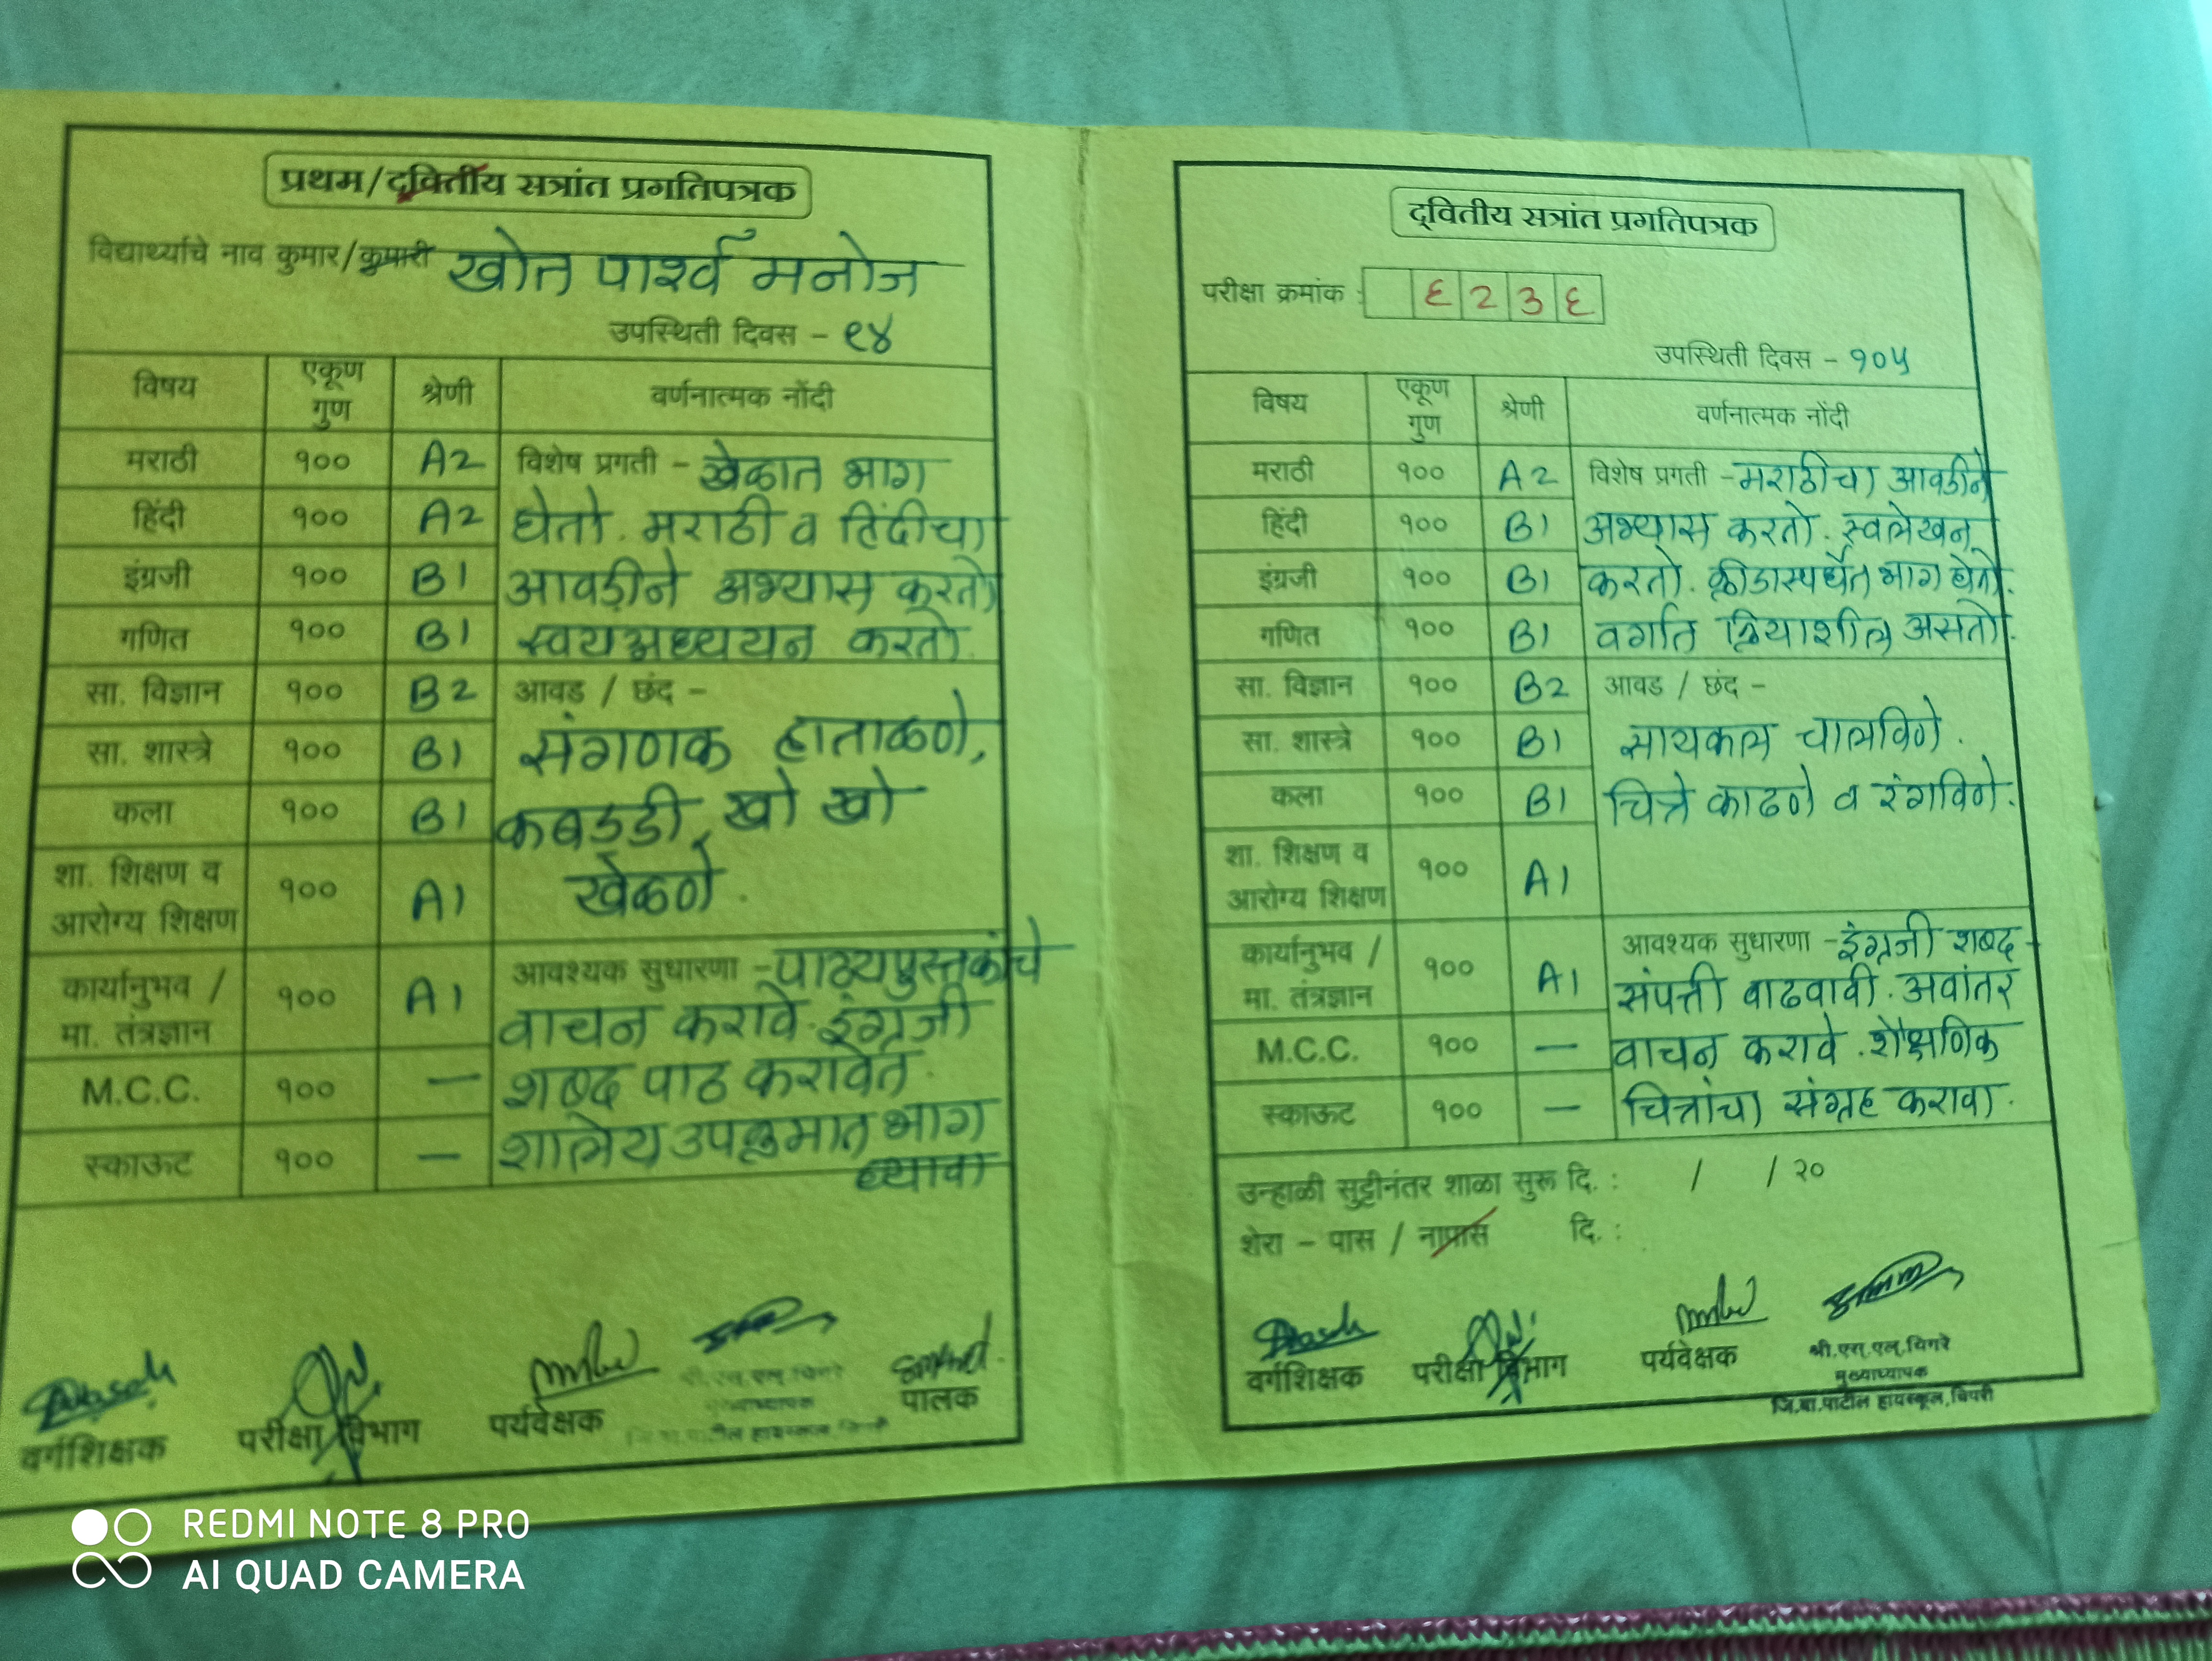 प्रथम/द्वितीय सत्रांत प्रगतिपत्रक
विद्यार्थ्याचे नाव कुमार/कुमारी खोत पार्श्व मनोज
उपस्थिती दिवस - ९४
विषय एकूण गुण श्रेणी वर्णनात्मक नोंदी
मराठी १०० A2 विशेष प्रगती - खेळात भाग
हिंदी १०० A2 घेतो. मराठी व हिंदीचा
इंग्रजी १०० B1 आवडीने अभ्यास करतो
गणित १०० B1 स्वयअध्ययन करतो.
सा. विज्ञान १०० B2 आवड / छंद -
सा. शास्त्रे १०० B1 संगणक हाताळणे,
कला १०० B1 कबड्डी, खो खो
शा. शिक्षण व आरोग्य शिक्षण १०० A1 खेळणे.
कार्यानुभव / मा. तंत्रज्ञान १०० A1 आवश्यक सुधारणा - पाठ्यपुस्तकांचे
वाचन करावे. इंग्रजी
M.C.C. १०० — शब्द पाठ करावेत.
स्काऊट १०० — शालेय उपक्रमात भाग
घ्यावा
वर्गशिक्षक परीक्षा विभाग पर्यवेक्षक पालक
द्वितीय सत्रांत प्रगतिपत्रक
परीक्षा क्रमांक : ६२३६
उपस्थिती दिवस - १०५
विषय एकूण गुण श्रेणी वर्णनात्मक नोंदी
मराठी १०० A2 विशेष प्रगती - मराठीचा आवडीने
हिंदी १०० B1 अभ्यास करतो. स्वलेखन
इंग्रजी १०० B1 करतो. क्रीडास्पर्धेत भाग घेतो.
गणित १०० B1 वर्गात क्रियाशील असतो.
सा. विज्ञान १०० B2 आवड / छंद -
सा. शास्त्रे १०० B1 सायकल चालविणे.
कला १०० B1 चित्रे काढणे व रंगविणे.
शा. शिक्षण व आरोग्य शिक्षण १०० A1
कार्यानुभव / मा. तंत्रज्ञान १०० A1 आवश्यक सुधारणा - इंग्रजी शब्द
संपत्ती वाढवावी. अवांतर
M.C.C. १०० — वाचन करावे. शैक्षणिक
स्काऊट १०० — चित्रांचा संग्रह करावा.
उन्हाळी सुट्टीनंतर शाळा सुरू दि. : / / २०
शेरा - पास / नापास दि. :
वर्गशिक्षक परीक्षा विभाग पर्यवेक्षक श्री.एस.एल.चिगरे
मुख्याध्यापक
जि.बा.पाटील हायस्कूल,चिपरी
REDMI NOTE 8 PRO
AI QUAD CAMERA